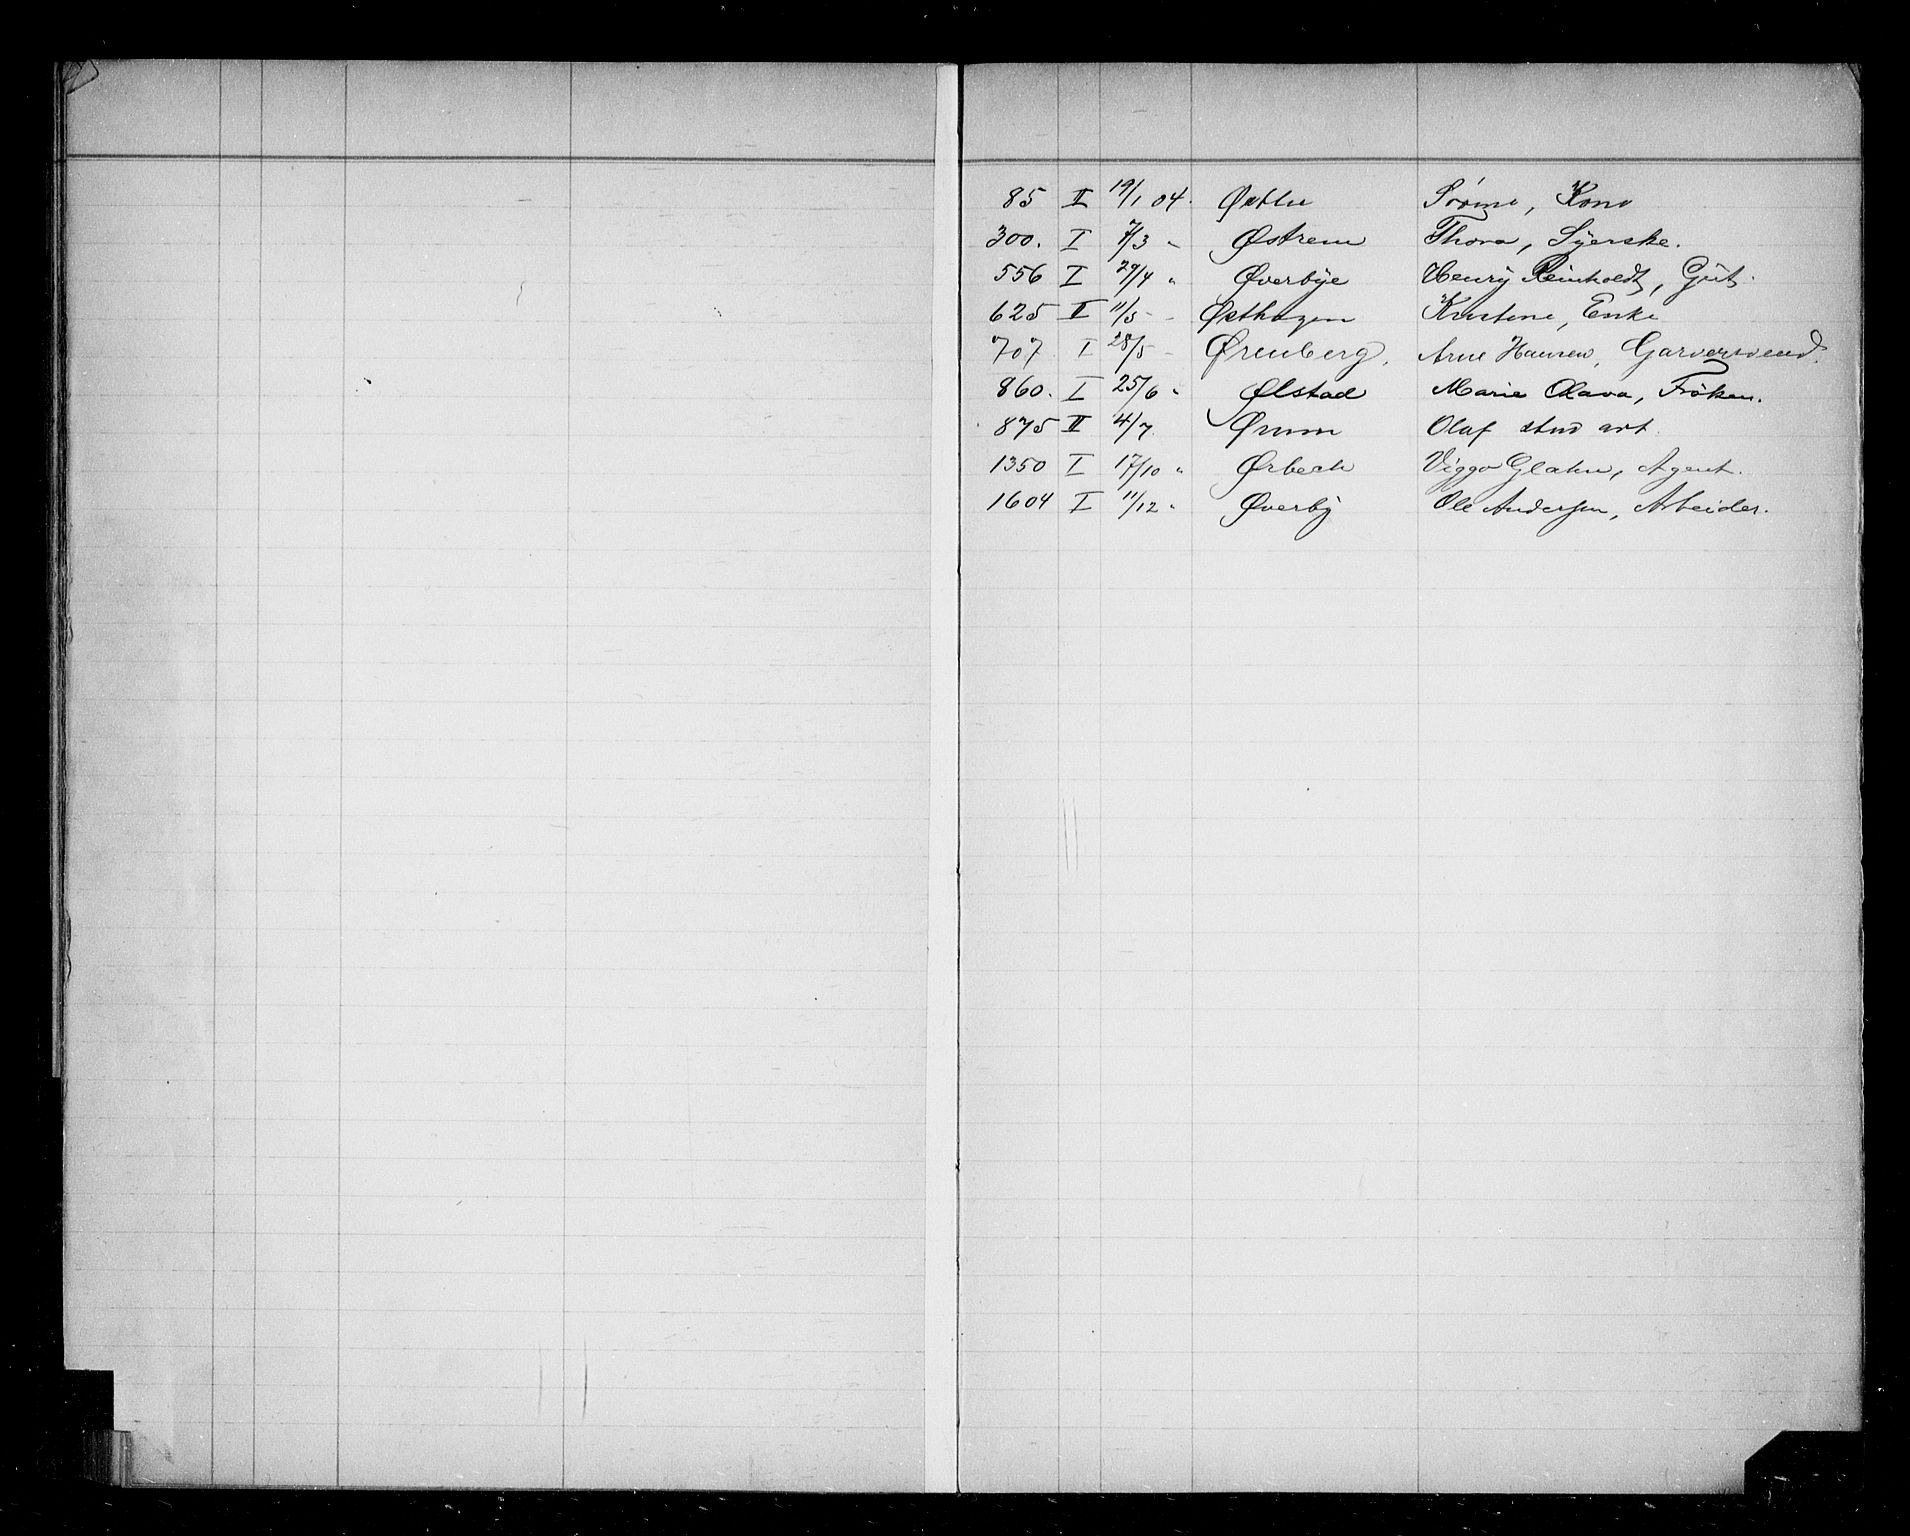 85 II 19/1 04. Østlie Kone
300. I 7/3 " Østrem Thora, Syerske.
556 I 29/4 " Øverbye Henry Reinholdt, Gut.
625 II 11/5 - Østhagen Kristine, Enke
707 I 28/5 - Ørenberg. Arne Hansen, Garversvend.
860. I 25/6 " Ølstad Marie Olava, Frøken.
875 II 4/7. Ørum Olaf stud art.
1350 I 17/10 " Ørbech Viggo Glahn, Agent.
1604 I 11/12 " Øverby Ole Andersen, Arbeider.